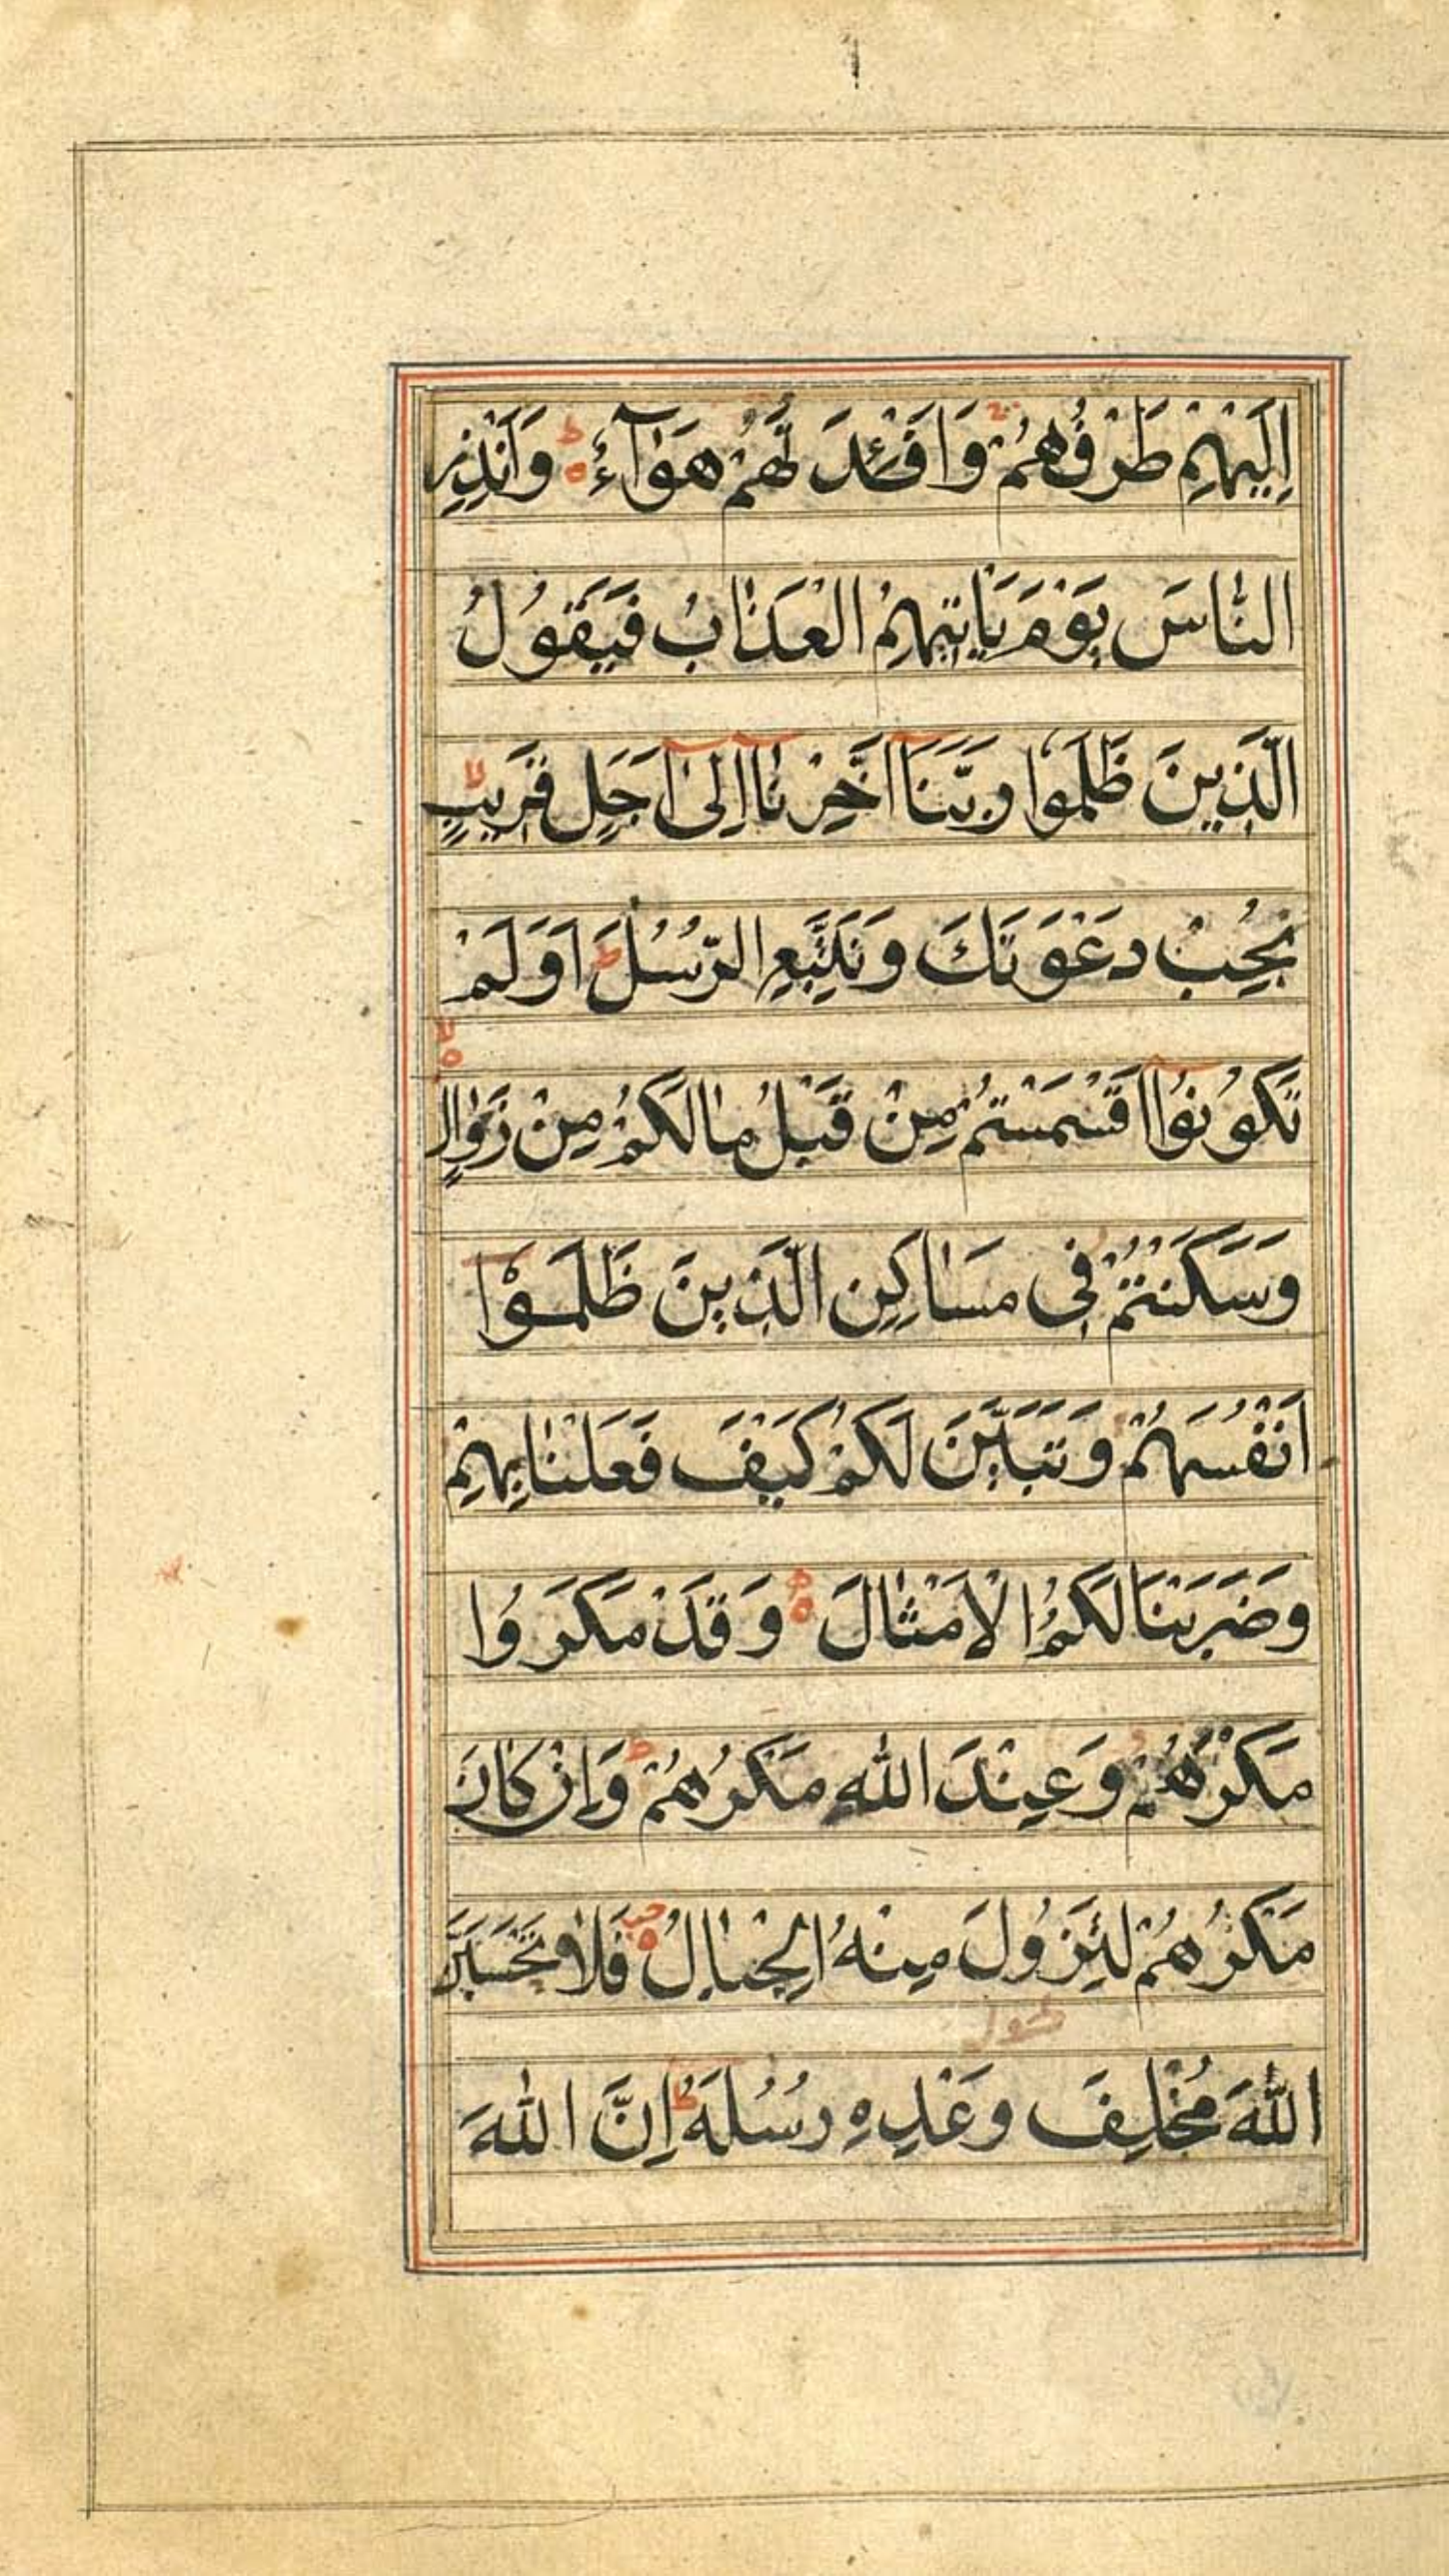 اِلَيْهِمْ طَرْفُهُمْ وَاَفْـِٕدَتُهُمْ هَوَآءٌ وَاَنْذِرِ
النَّاسَ يَوْمَ يَاْتِيْهِمُ الْعَذَابُ فَيَقُوْلُ
الَّذِيْنَ ظَلَمُوْا رَبَّنَآ اَخِّرْنَآ اِلٰٓى اَجَلٍ قَرِيْبٍ
نُجِبْ دَعْوَتَكَ وَنَتَّبِعِ الرُّسُلَ ط اَوَلَمْ
تَكُوْنُوْٓا اَقْسَمْتُمْ مِنْ قَبْلُ مَا لَكُمْ مِنْ زَوَالٍ
وَسَكَنْتُمْ فِى مَسَاكِنِ الَّذِيْنَ ظَلَمُوْٓا
اَنْفُسَهُمْ وَتَبَيَّنَ لَكُمْ كَيْفَ فَعَلْنَا بِهِمْ
وَضَرَبْنَا لَكُمُ الْاَمْثَالَ وَقَدْ مَكَرُوْا
مَكْرَهُمْ وَعِنْدَ اللّٰهِ مَكْرُهُمْ ط وَاِنْ كَانَ
مَكْرُهُمْ لِتَزُوْلَ مِنْهُ الْجِبَالُ فَلَا تَحْسَبَنَّ
اللّٰهَ مُخْلِفَ وَعْدِهٖ رُسُلَهٗ ط اِنَّ اللّٰهَ